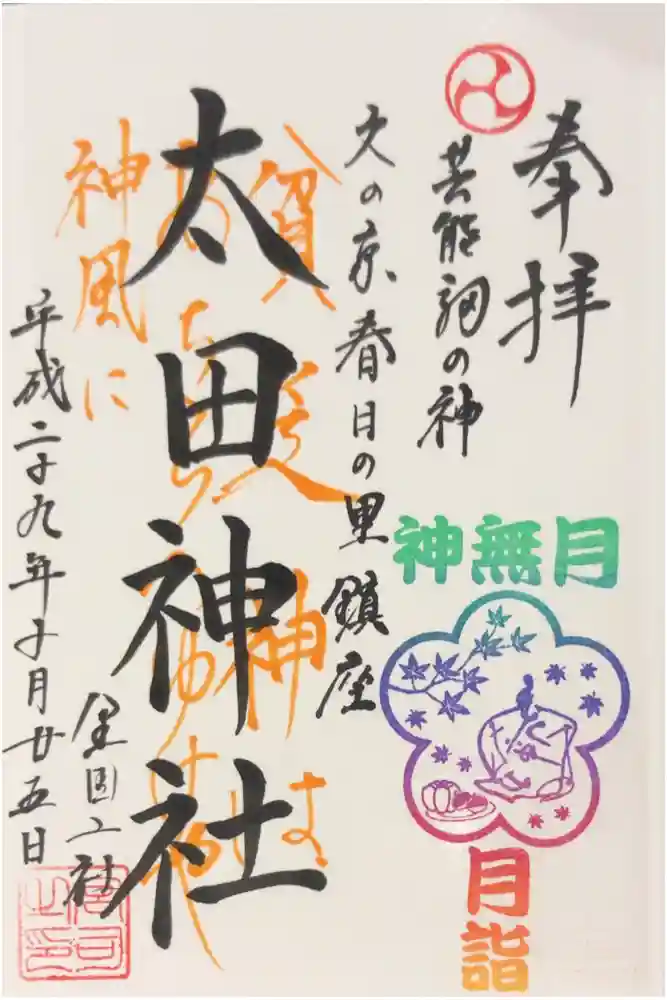 奉拝
の神
文の京春日の里鎮座
太田神社
神風に
全国一社
平成二十九年十月廿五日
神無月
月詣
宮司之印